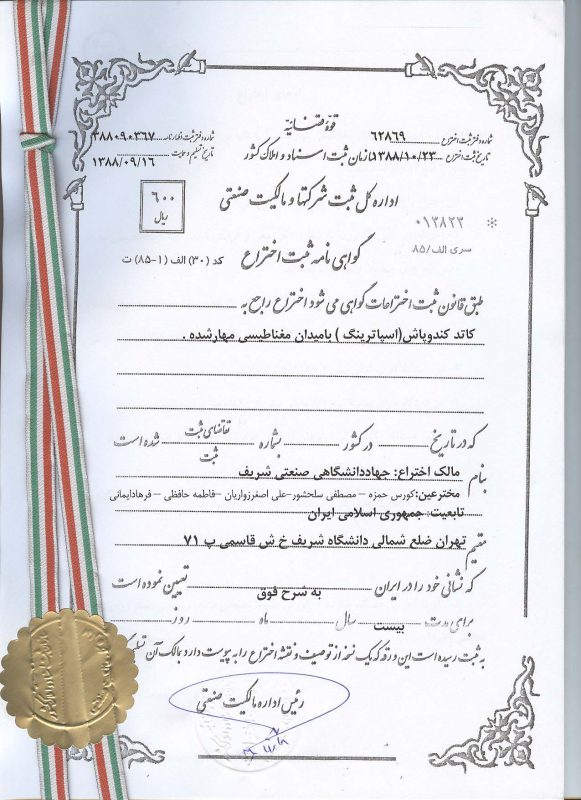 قوهٔ قضائیه
شماره دفتر ثبت اختراع ۶۲۸۶۹
شماره دفتر ثبت اظهارنامه ۳۸۸۰۹۰۳۶۷
تاریخ ثبت اختراع ۱۳۸۸/۱۰/۲۳
سازمان ثبت اسناد و املاک کشور
تاریخ تسلیم و ساعت ۱۳۸۸/۰۹/۱۶
اداره کل ثبت شرکتها و مالکیت صنعتی
۶۰۰
ریال
* ۰۱۳۸۲۳
سری الف/۸۵
گواهی نامه ثبت اختراع
کد (۳۰) الف (۱-۸۵) ت
طبق قانون ثبت اختراعات گواهی می شود اختراع راجع به
کاتد کندوپاش(اسپاترینگ ) بامیدان مغناطیسی مهارشده .
که در تاریخ در کشور بشماره تقاضای ثبت شده است
ثبت
بنام مالک اختراع: جهاددانشگاهی صنعتی شریف
مخترعین:کورس حمزه – مصطفی سلحشور-علی اصغرزواریان –فاطمه حافظی – فرهادایمانی
تابعیت: جمهوری اسلامی ایران
مقیم تهران ضلع شمالی دانشگاه شریف خ ش قاسمی پ ۷۱
که نشانی خود را در ایران به شرح فوق تعیین نموده است
برای مدت بیست سال ماه روز
به ثبت رسیده است این ورقه که یک نسخه از توصیف و نقشه اختراع را به پیوست دارد بمالک آن
رئیس اداره مالکیت صنعتی